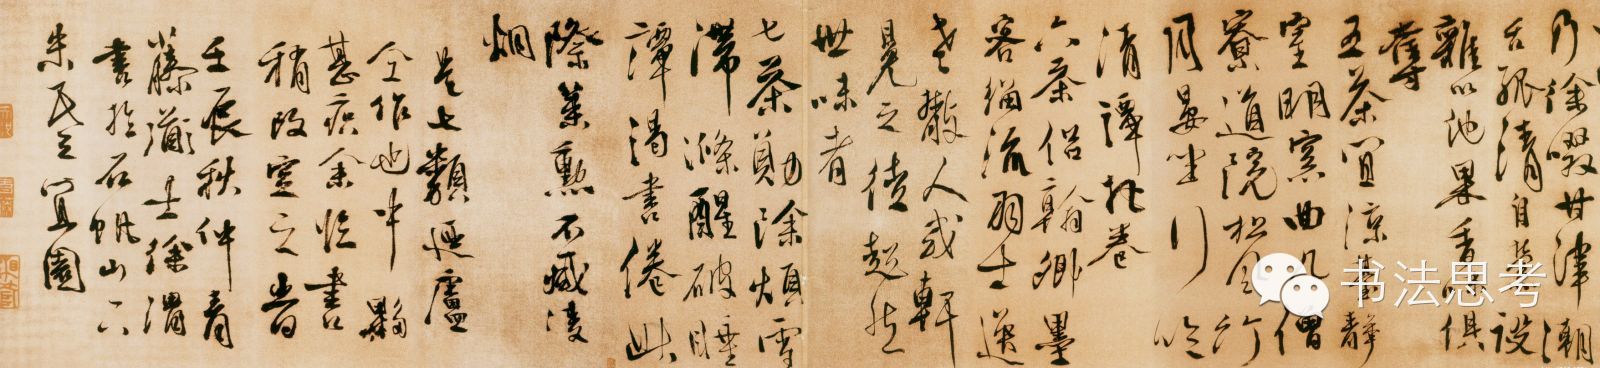 乃徐啜甘津潮
舌孤清自縈設
雜以他果香味俱
奪
五茶宜涼臺靜
室明窓曲几僧
寮道院松風竹
月晏坐行吟
清譚把卷
六茶侶翰卿墨
客緇流羽士逸
老散人或軒
冕之徒超然
世味者
七茶勳除煩雪
滯滌醒破睡
譚渴書倦此
際策勳不減凌
烟
是七類迺盧
仝作也中夥
甚疾余臨書
稍改定之時
壬辰秋仲青
藤道士徐渭
書於石帆山下
朱氏之宜園
书法思考